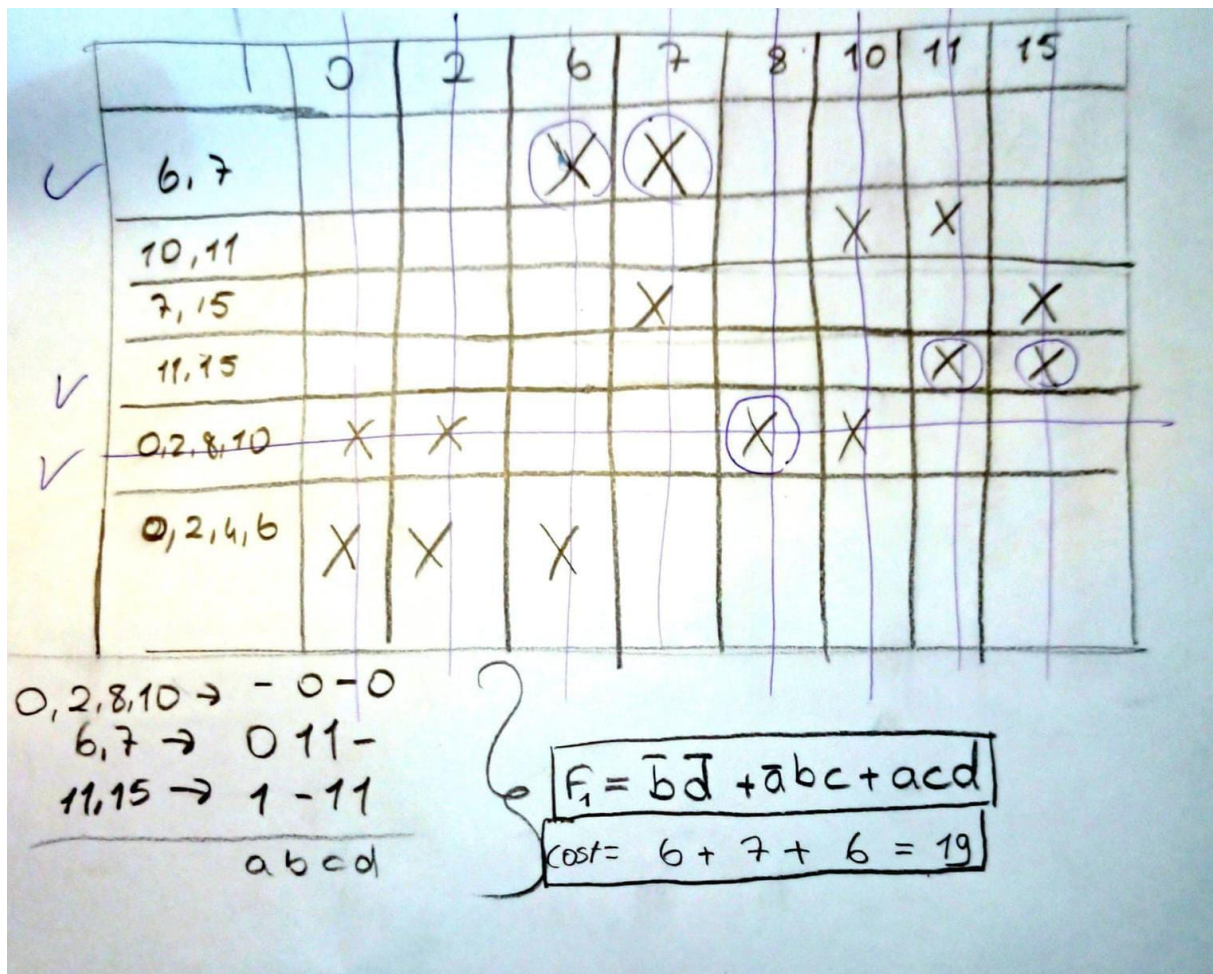 | 0 2 6 7 8 10 11 15
6,7 X X
10,11 X X
7,15 X X
11,15 X X
0,2,8,10 X X X X
0,2,4,6 X X X
0,2,8,10 → - 0 - 0
6,7 → 0 1 1 -
11,15 → 1 - 1 1
a b c d
F₁ = b̅ d̅ + a̅ b c + a c d
cost = 6 + 7 + 6 = 19